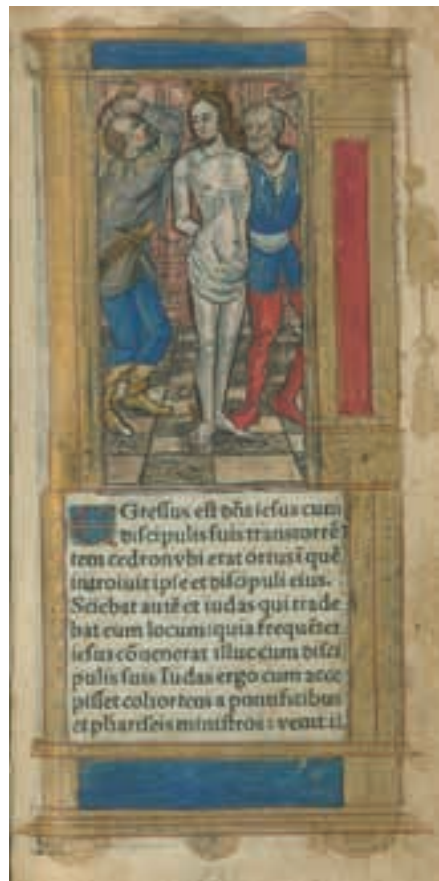 Gressus est dñs iesus cum
discipulis suis trans torrē
tem cedron vbi erat ortus ī quē
introiuit ipse et discipuli eius.
Sciebat autē et iudas qui trade
bat eum locum: quia frequēter
iesus cōuenerat illuc cum disci
pulis suis Iudas ergo cum acce
pisset cohortem a pontificibus
et phariseis ministros: venit il